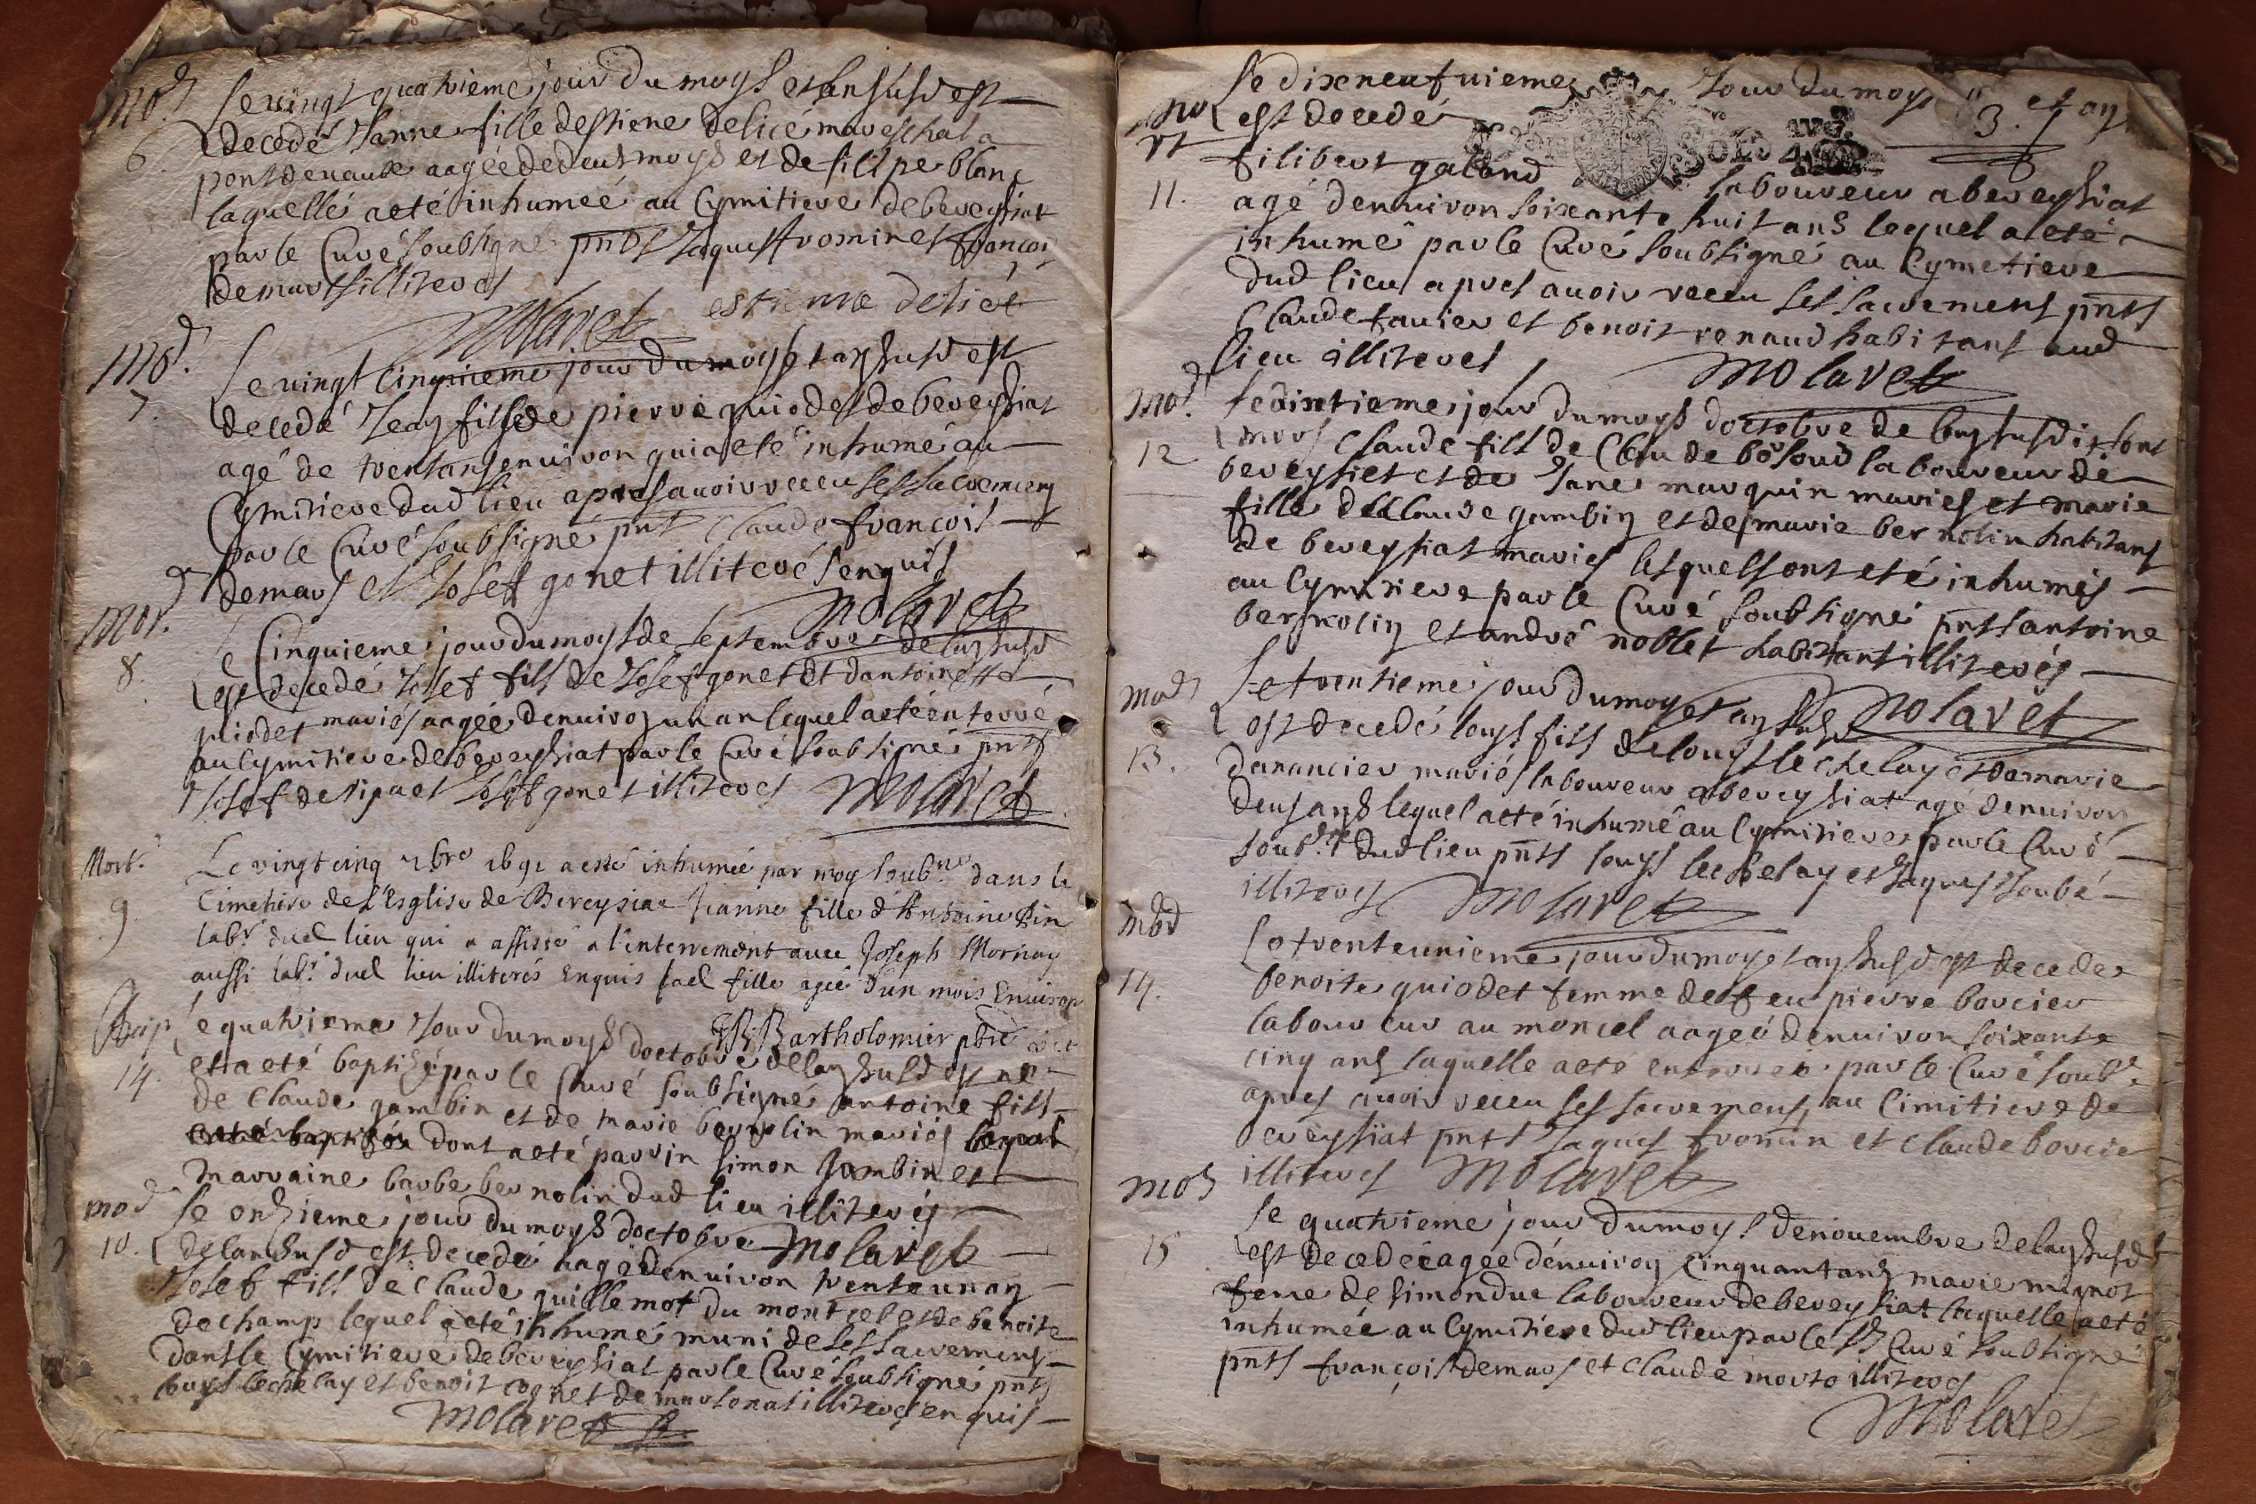 mor
6
Le vingt quatrieme jour du moys et an susd est
decedé Janne fille destiene delicé mareschal a
pont de vaux aagée de deux moys et de filipe blanc
laquelle a eté inhumeé au Cymitiere de bereysiat
par le Curé soubsigné pnts Jaques fromin et françois
demars illiteres
Molaret estienne delicé
Mor.
7.
Le vingt cinquieme jour du moys et an susd est
decedé Jean fils de pierre quiodet de bereysiat
agé de trent ans enuiron qui a eté inhumé au
Cymitiere dud lieu apres auoir receu ses sacremens
par le Curé soubsigné pnt Claude françois
demars et Josef gonet illiteré enquis
Molaret
Mor.
8.
Le Cinquieme jour du moys de septembre de lan susd
est decedé Josef fils de Josef gonet et dantoinette
quiodet mariés aagée denuiron un an lequel a eté enterré
au Cymitiere de bereysiat par le Curé soubsigné pnts
Josef de ripa et Josef gonet illiteres Molaret
Mort.
9
Le vingt cinq 7bre 1691 a esté inhumée par moy soubne dans le
Cimetiere de l'Esglise de Bereysiat Jeanne fille d'Antoine
labr dud lieu qui a assisté a l'enterrement auec Joseph Mornay
aussi labr dud lieu illiterés Enquis lad fille agée d'un mois Enuiron
Bartholomier pbre
Bap
14.
Le quatrieme Jour du moys doctobre de lan susd est né
et a eté baptisé par le Curé soubsigné antoine fils
de Claude gambin et de marie bernolin mariés lequel
dont a eté parrin simon Jambin et
marraine barbe bernolin dud lieu illiterés
Molaret
mor
10.
Le onzieme jour du moys doctobre
de lan susd est decedé aagé denuiron trente un an
Josef fils de Claude guillemot du montcel et de benoite
dechamp lequel a eté inhumé muni de ses sacremens
dans le Cymitiere de bereysiat par le Curé soubsigné pnts
louys lechelay et benoit cognet de marsonas illiteres enquis
Molaret
mo
rt
11.
Le dixneufuieme Jour du moys et an
3.
est decedé
filibert galand laboureur a bereysiat
agé denuiron soixante huit ans lequel a eté
inhumé par le Curé soubsigné au Cymetiere
dud lieu apres auoir receu ses sacremens pnts
Claude fauier et benoit renaud habitans aud
lieu illiteres
Molaret
mor.
12
Le dixtieme jour du moys doctobre de lan susdit sont
mors Claude fils de Claude laboureur de
bereysiet et de Jane marquin maries et marie
fille de Claude gambin et de marie bernolin habitans
de bereysiat maries lesquels ont eté inhumés
au Cymitiere par le Curé soubsigné pnts antoine
bernolin et andré noblet habitant illiterés
Molaret
mor
13.
Le trentieme jour du moys et an susd
est decedé louys fils de louys lechelay et de marie
danancier mariés laboureur a bereysiat agé denuiron
deux ans lequel a eté inhumé au Cymitiere par le Curé
soubs. dud lieu pnts louys lechelay et Jaques Joubé
illiteres Molaret
mor
14.
Le trenteunieme jour du moys et an susd est decedee
benoite quiodet femme de feu pierre borcier
laboureur au moncel aageé denuiron soixante
cinq ans laquelle a eté enterreé par le Curé soubs.
apres auoir receu ses sacremens au Cimitiere de
bereysiat pnts Jaques fromin et Claude borcie
illiteres Molaret
mor
15
Le quatrieme jour du moys de nouembre de lan susd
est decedeé agée denuiron Cinquant ans marie mignot
feme de simon duc laboureur de bereysiat laquelle a eté
inhumée au Cymitiere dud lieu par le Curé soubsigné
pnts françois demars et Claude morto illiteres
Molaret